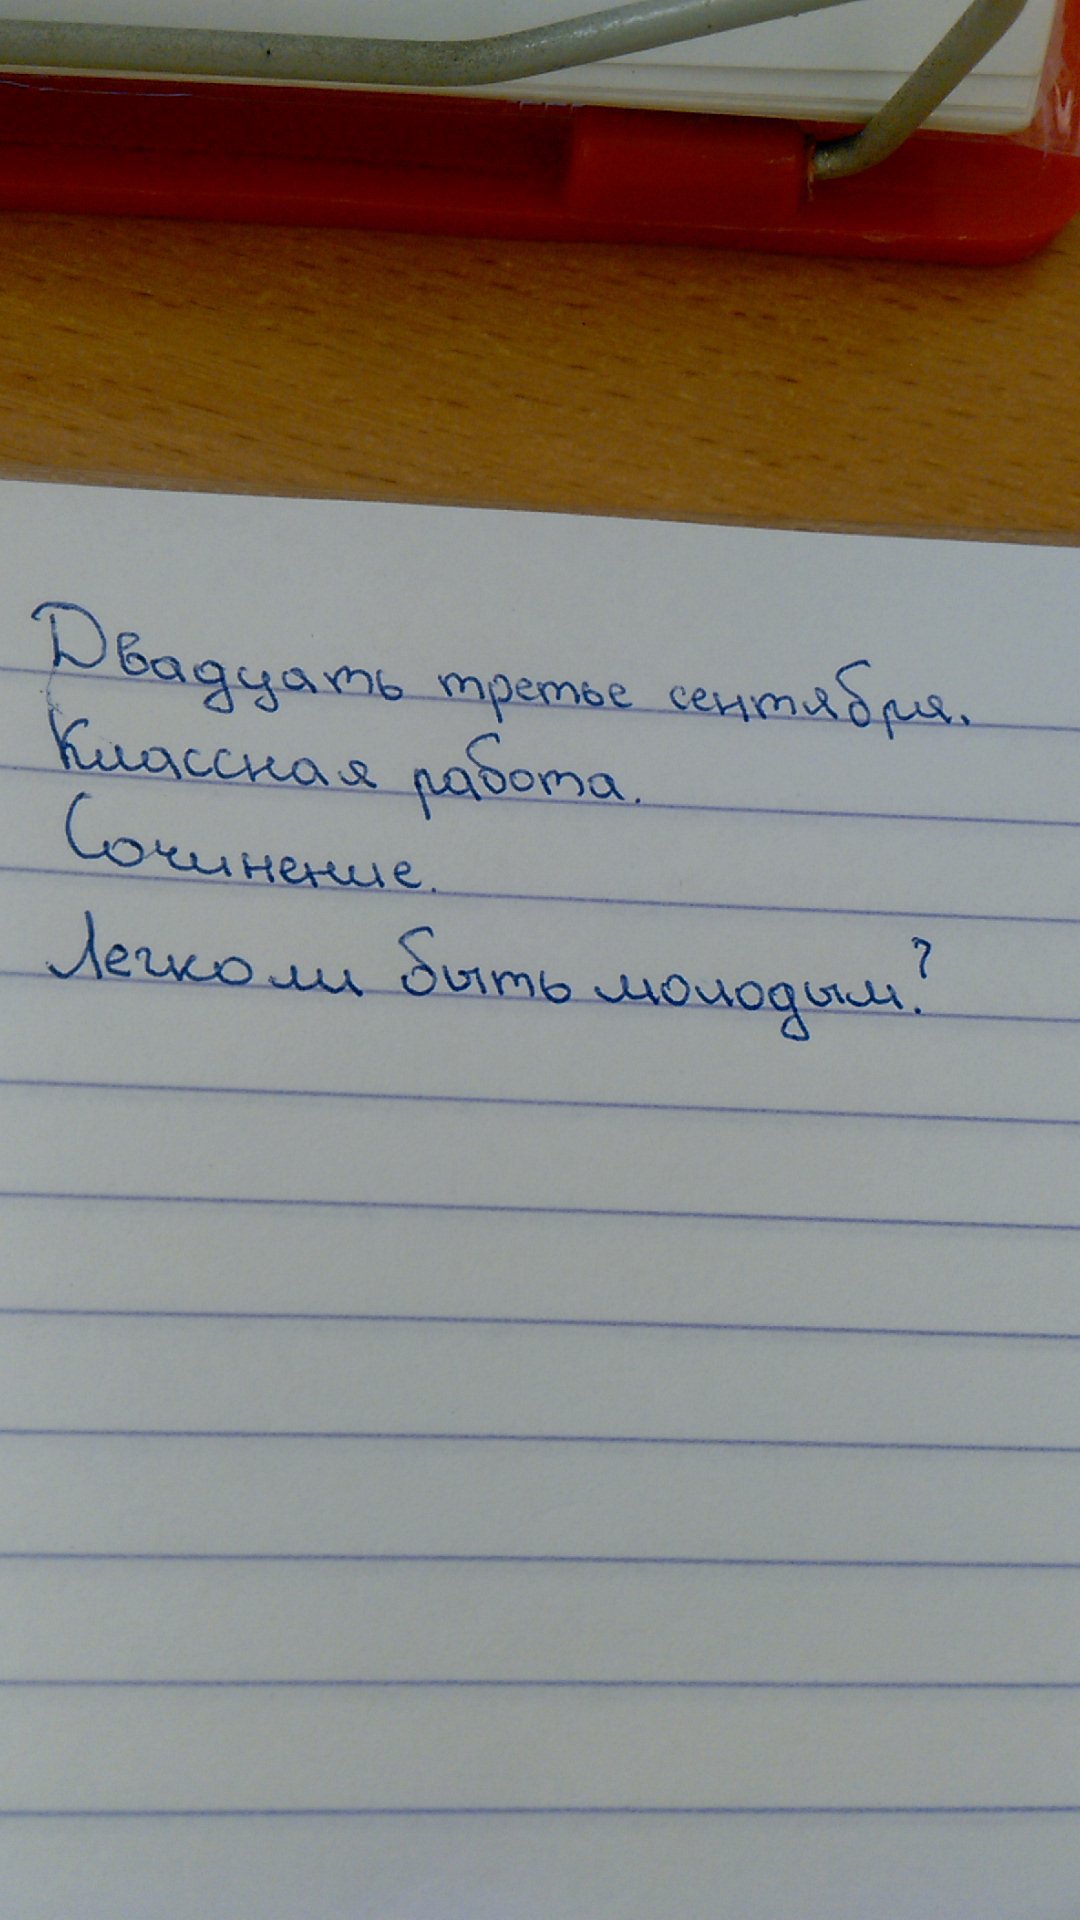 Двадцать третье сентября.
Классная работа.
Сочинение.
Легко ли быть молодым?